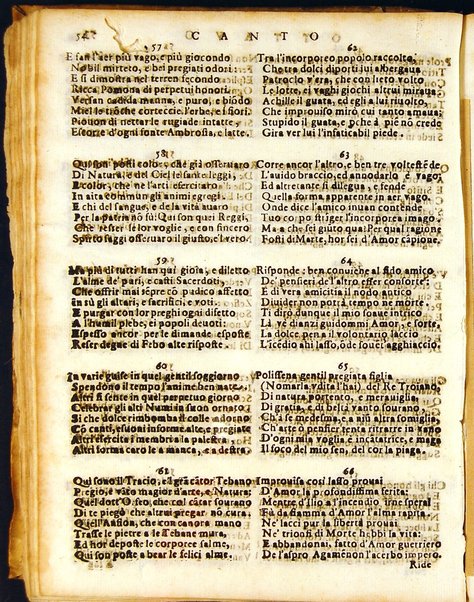 54 CANTO
57
E fan l'aer più vago, e più giocondo
Nobil mirteto, e bei pregiati odori:
E si dimostra nel terren secondo
Ricca Pomona di perpetui honori.
Versan manna, e puro, e biõdo
Miel le troniche cortecci, l'erbe, e i fiori.
Piouon di nettar le rugiade intatte,
E scorre d'ogni fonte Ambrosia, e latte.
58
Qui son poi color, che già osseruaro
Di Natura, e del Ciel le sante leggi,
E color, che ne l'arti esercitaro
In vita commun gli animi egregi.
E chi del sangue, e de la vita auaro
Per la patria nõ fù: Qui son quei Reggi,
Che resser se lor voglie, e con sincero
Spirto saggi osseruaro il giusto, e'l vero.
59
Ma più di tutti han qui gioia, e diletto
L'alme de' pari, e casti Sacerdoti,
Che offrir mai sepre cõ pudico affetto
In sù gli altari, e sacrifici, e voti.
E purgar con lor preghi ogni difetto
A l'humil plebe, e i popoli deuoti:
E spesso ancor per le dimande esposte
Refer degne di Febo alte risposte.
60
In varie guise in quel gentil soggiorno
Spendono il tempo l'anime ben nate.
Altri si sente in quel perpetuo giorno
Celebrar gli alti Numi in suon ornato
Sì che dolce rimbomba il colle adorno
Cõ canti, e suoni informe alte, e pregiate
Altri esercita i membri a la palestra,
Altri forma caro le a manca, e a destra.
61
Qui suono il Tracio, e'l gra cãtor Tebano
Pregio, e vãto maggior d'arte, e Natura:
Quel dott'Orfeo, che col cãtar sourano
Di te piegò che altrui pregar nõ cura.
Quell'Anfion, che con canora mano
Trasse le pietre a le Tebane mura,
Ed hor deposte le corporee salme,
Qui son poste a bear le felici alme.
62
Tra l'incorporeo popolo raccolto,
Che tra dolci diporti iui albergaua
Patroclo v'era, che con lieto volto
Le lotte, e i vaghi giochi altrui miraua
Achille il guata, ed egli a lui riuolto,
Che improuiso mirò cui tanto amaua:
Stupido il guata, e perchè a piè nõ crede
Gira ver lui l'infaticabil piede.
63
Corre ancor l'altro, e ben tre volte stẽde
L'auido braccio, ed annodarlo è vago:
Ed altretante si dilegua, e fende
Quella forma apparente in aer vago.
Onde dice l'amico in uan contende
Tuo corpo stringer l'incorporea imago.
Ma a che sei giuto qua: Per qual ragione
Fosti di Morte, hor sei d'Amor cãpione.
64
Risponde: ben conuiẽche al fido amico
De' pensieri de l'altro esser consorte:
E di vera amicitia il nodo antico
Diuider non potrà tempo nè morte.
Ti dirò dunque il mio soaue intrico
Là vè dianzi guidommi Amor, e sorte,
La dolce pena il volontario laccio
L'icẽdio ahi lasso, õde souẽte agghiaccio.
65
Polissena gentil pregiata figlia
(Nomarla vdita l'hai) del Re Troiano,
Di natura portento, e merauiglia,
Di gratia, e di beltà vanto sourano,
Ch'à se credesma, e à più altra somiglia,
Ch'arte ò pensier tenta ritrarre in vano
D'ogni mia voglia e incãtatrice, e maga
Il foco del mio sen, del cor la piaga.
66
Improuisa così lasso prouai
D'Amor la profondissima ferita:
Mentre d'Ilio a l'incendio fine sperai
Fù da fiamma d'Amor l'alma rapita.
Ne' lacci pur la libertà prouai
Ne' trionfi di Morte hebbi la vita:
E abbandonai, fatto d'Amor guerriero
De l'aspro Agamẽnon l'acerbo impero.
Ride